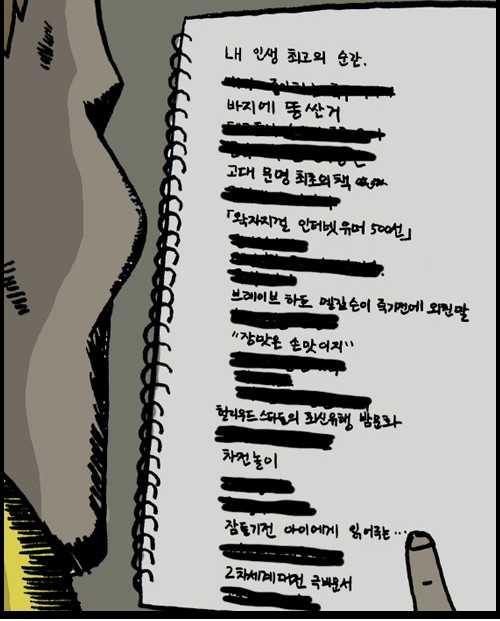 내 인생 최고의 순간.
바지에 똥 싼 거
고대 문명 최초의 책
「왁자지껄 인터넷 유머 500선」
브레이브 하트 멜깁슨이 죽기전에 외친말
"장맛은 손맛이지"
헐리우드 스타들의 최신유행, 밤문화
차전놀이
잠들기전 아이에게 읽어주는...
2차세계대전 극비문서